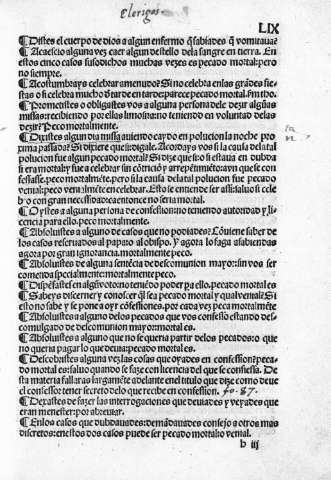 Clerigos
LIX
¶ Distes el cuerpo de dios a algun enfermo q̄ sabiades q̄ vomitaua?
¶ Acaescio alguna vez caer algun destello dela sangre en tierra. En
estos cinco casos susodichos muchas vezes es pecado mortal: pero
no siempre.
¶ Acostumbrays celebrar amenudo? Si no celebra enlas grādes fie-
stas o si celebra mucho de tarde en tarde parece pecado mortal.
¶ Prometistes o obligastes vos a alguna persona de le dezir algūas
missas: recibiendo por ellas limosna: no teniendo en voluntad delas
dezir? Peco mortalmente.
¶ Dixistes algun dia missa auiendo caydo en polucion la noche pro
xima passada? Si dixere que si: digale. Acordays vos si la causa dela tal
polucion fue algun pecado mortal? Si dize que si o si estaua en dubda
si era mortal y fue a celebrar sin cōtriciō y arrepētimiēto: aya que se con
fessasse. peco mortalmente. pero si la causa dela tal polucion fue pecado
venial: peco venialmēte en celebrar. Esto se entiende ser assi: saluo si cele
bro con gran necessidad: ca entonce no seria mortal.
¶ Oystes a alguna persona de confession: no teniendo autoridad y li-
cencia para ello. peco mortalmente.
¶ Absoluistes a alguno de casos que no podiades? Cōuiene saber de
los casos reseruados al papa o al obispo. y agora lo faga a sabiendas
agora por gran ignorancia. mortalmente peco.
¶ Absoluistes de alguna sentēcia de descomunion mayor: sin vos ser
cometida specialmente: mortalmente peco.
¶ Dispēsastes en algū voto: no teniēdo poder pa ello. peco mortalmēte
¶ Sabeys discerner y conoscer q̄l sea pecado mortal y qual venial? Si
esto no sabe y se pone a oyr cōfessiones. por cada vez peca mortalmēte
¶ Absoluistes a alguno delos pecados que vos confesso estando des-
comulgado de descomunion mayor: mortal es.
¶ Absoluistes a alguno que no se queria partir delos pecados: o que
no queria pagar lo que deuia: pecado mortal es.
¶ Descobristes alguna vez las cosas que oyades en confession? peca-
do mortal es: saluo quando se faze con licencia del que se confiessa. De
sta materia fallaras largamēte adelante en el titulo que dize como deue
el confessor tener secreto delo que recibe en confession. fo. 87.
¶ Dexastes de fazer las interrogaciones que deuiades y veyades que
eran menester: por abreuiar.
¶ En los casos que dubdauades: demādauades consejo a otros mas
discretos: en estos dos casos puede ser pecado mortal o venial.
h iij